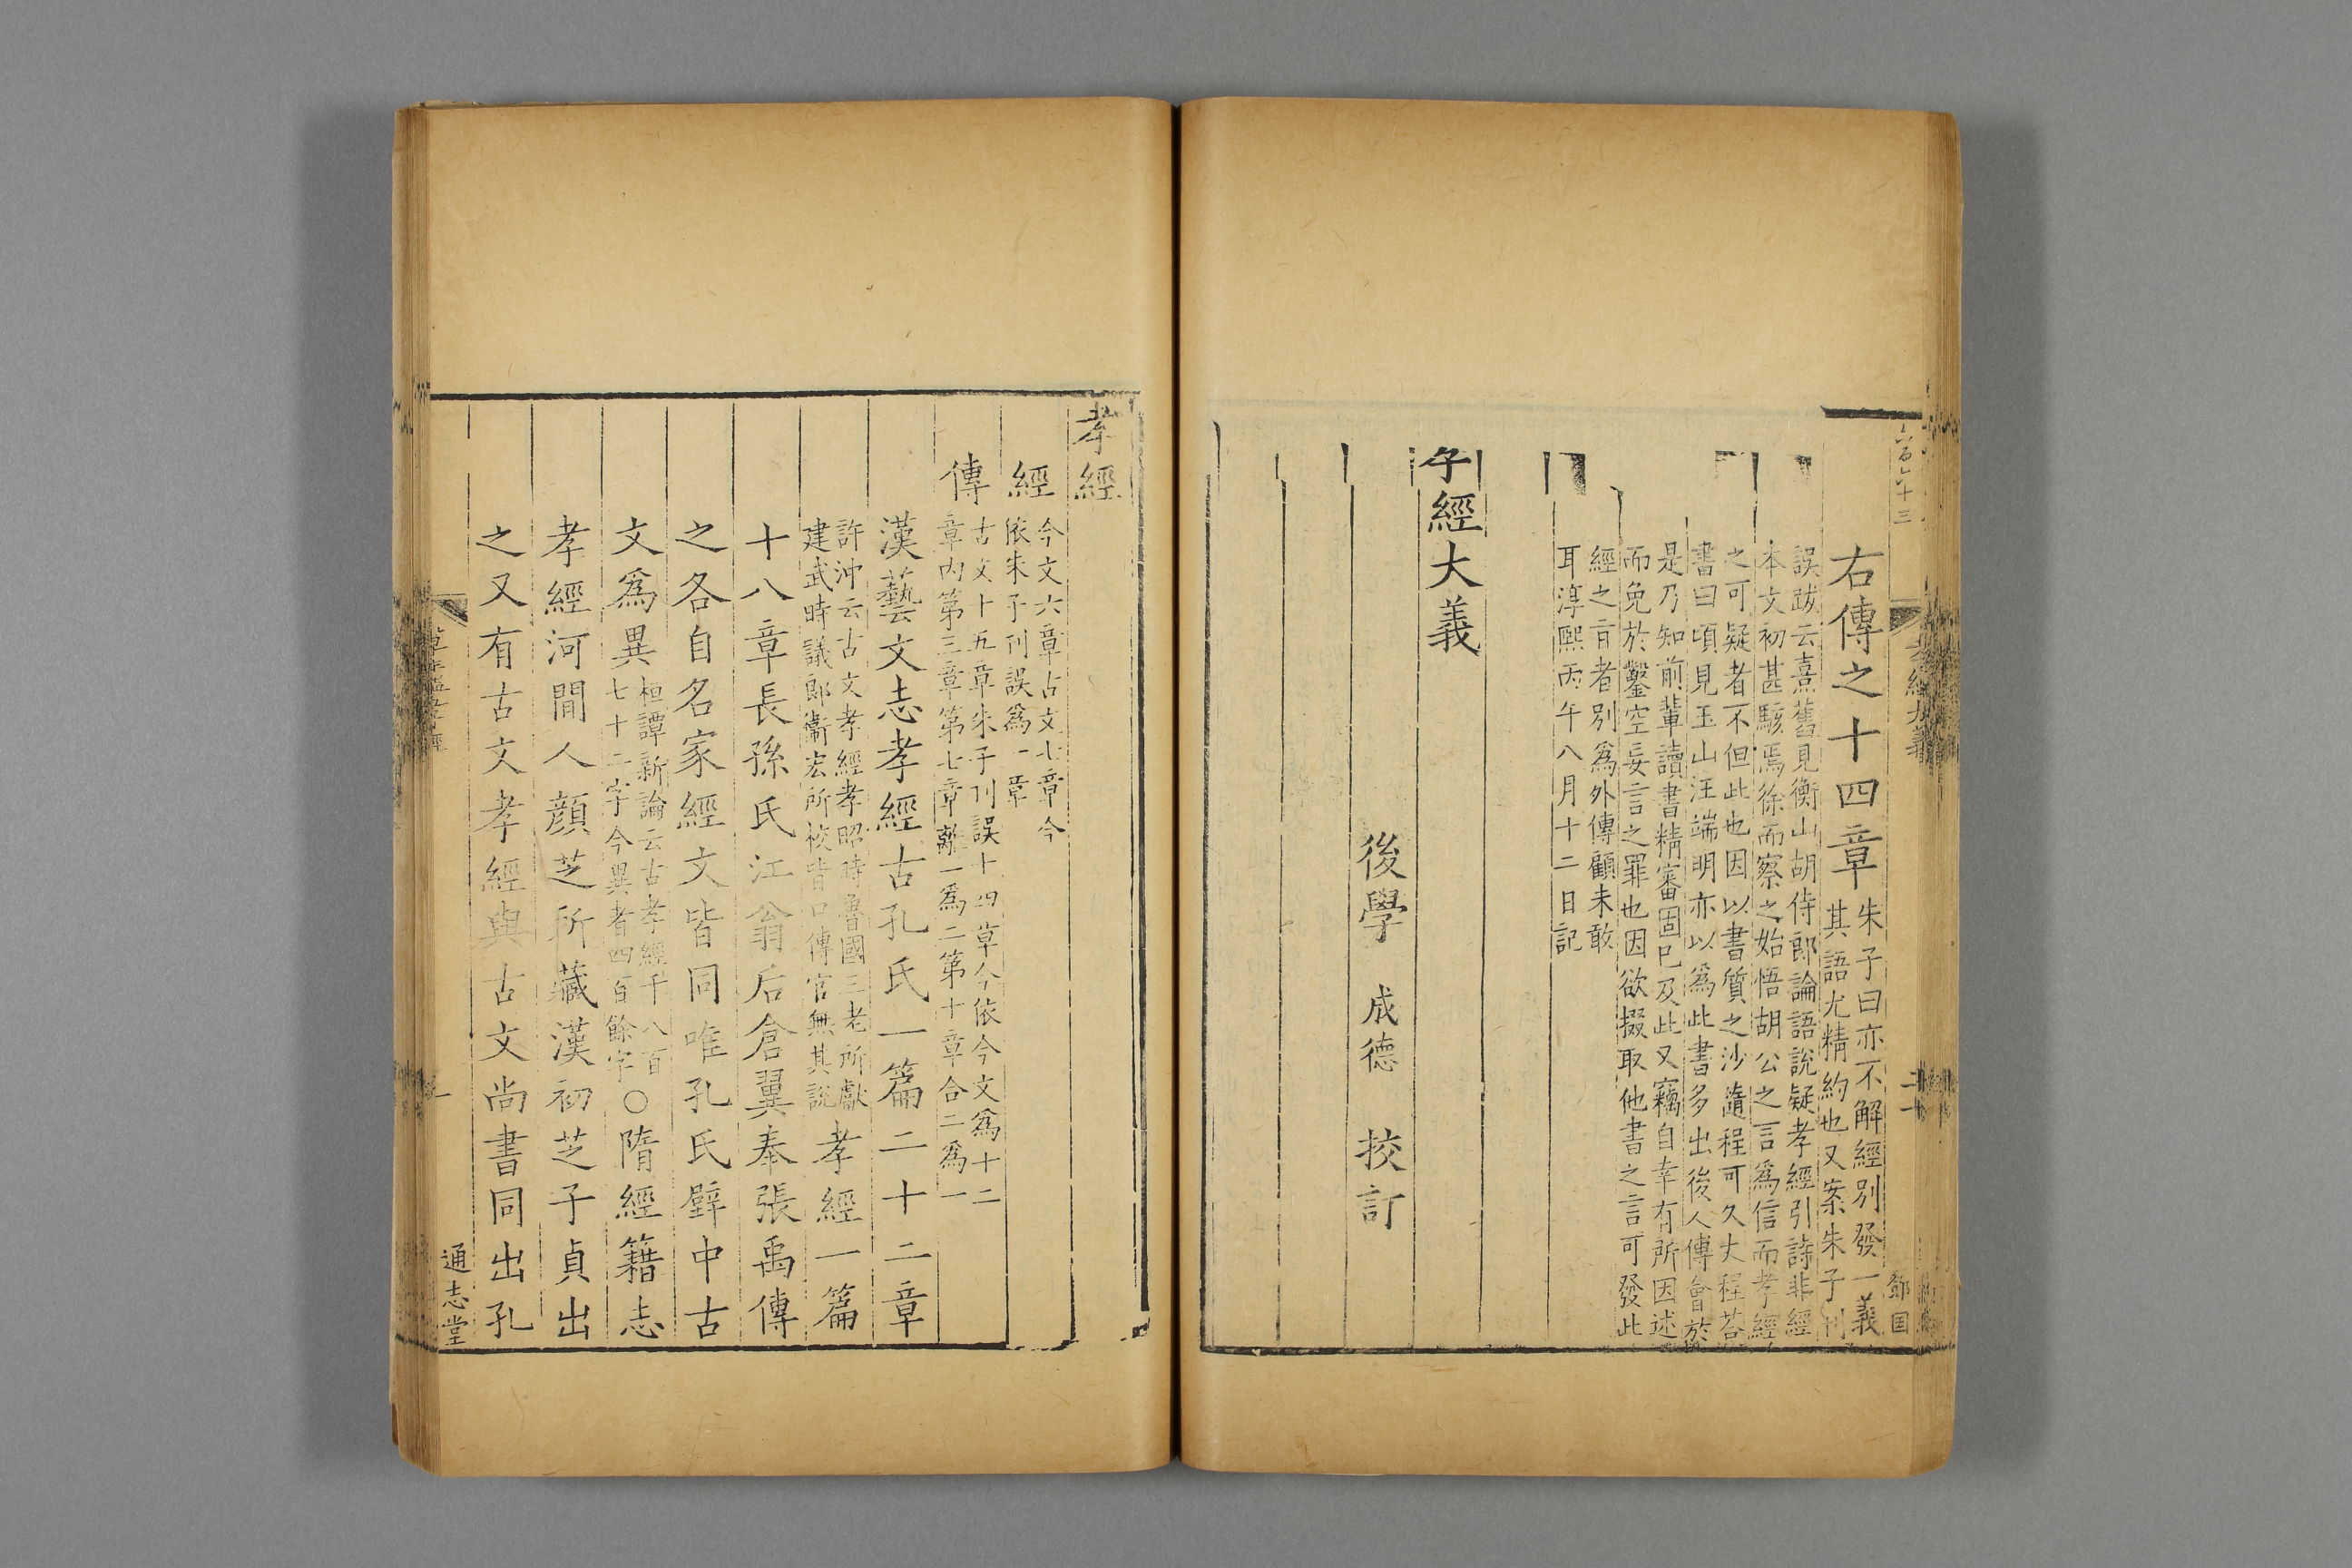 右傳之十四章
朱子曰亦不解經別發一義
其語尤精約也又案朱子刊
誤跋云熹舊見衡山胡侍郎論語說疑孝經引詩非經
本文初甚駭焉徐而察之始悟胡公之言爲信而孝經
之可疑者不但此也因以書質之沙隨程可久丈程荅
書曰頃見玉山汪端明亦以爲此書多出後人傅會於
是乃知前輩讀書精審固已及此又竊自幸有所因述
而免於鑿空妄言之罪也因欲掇取他書之言可發此
經之旨者別爲外傳顧未敢
耳淳熙丙午八月十二日記
經大義
後學 成德 挍訂
孝經大義
二十
鄧国
孝經
經
今文六章古文七章今
依朱子刊誤爲一章
傳
古文十五章朱子刊誤十四章今依今文爲十二
章内第三章第七章離一爲二第十章合二爲一
漢藝文志孝經古孔氏一篇二十二章
許沖云古文孝經孝昭時魯國三老所獻
建武時議郎衞宏所校皆口傳官無其說
孝經一篇
十八章長孫氏江翁后倉翼奉張禹傳
之各自名家經文皆同唯孔氏壁中古
文爲異
桓譚新論云古孝經千八百
七十二字今異者四百餘字
○隋經籍志
孝經河間人顏芝所藏漢初芝子貞出
之又有古文孝經與古文尚書同出孔
一
通志堂